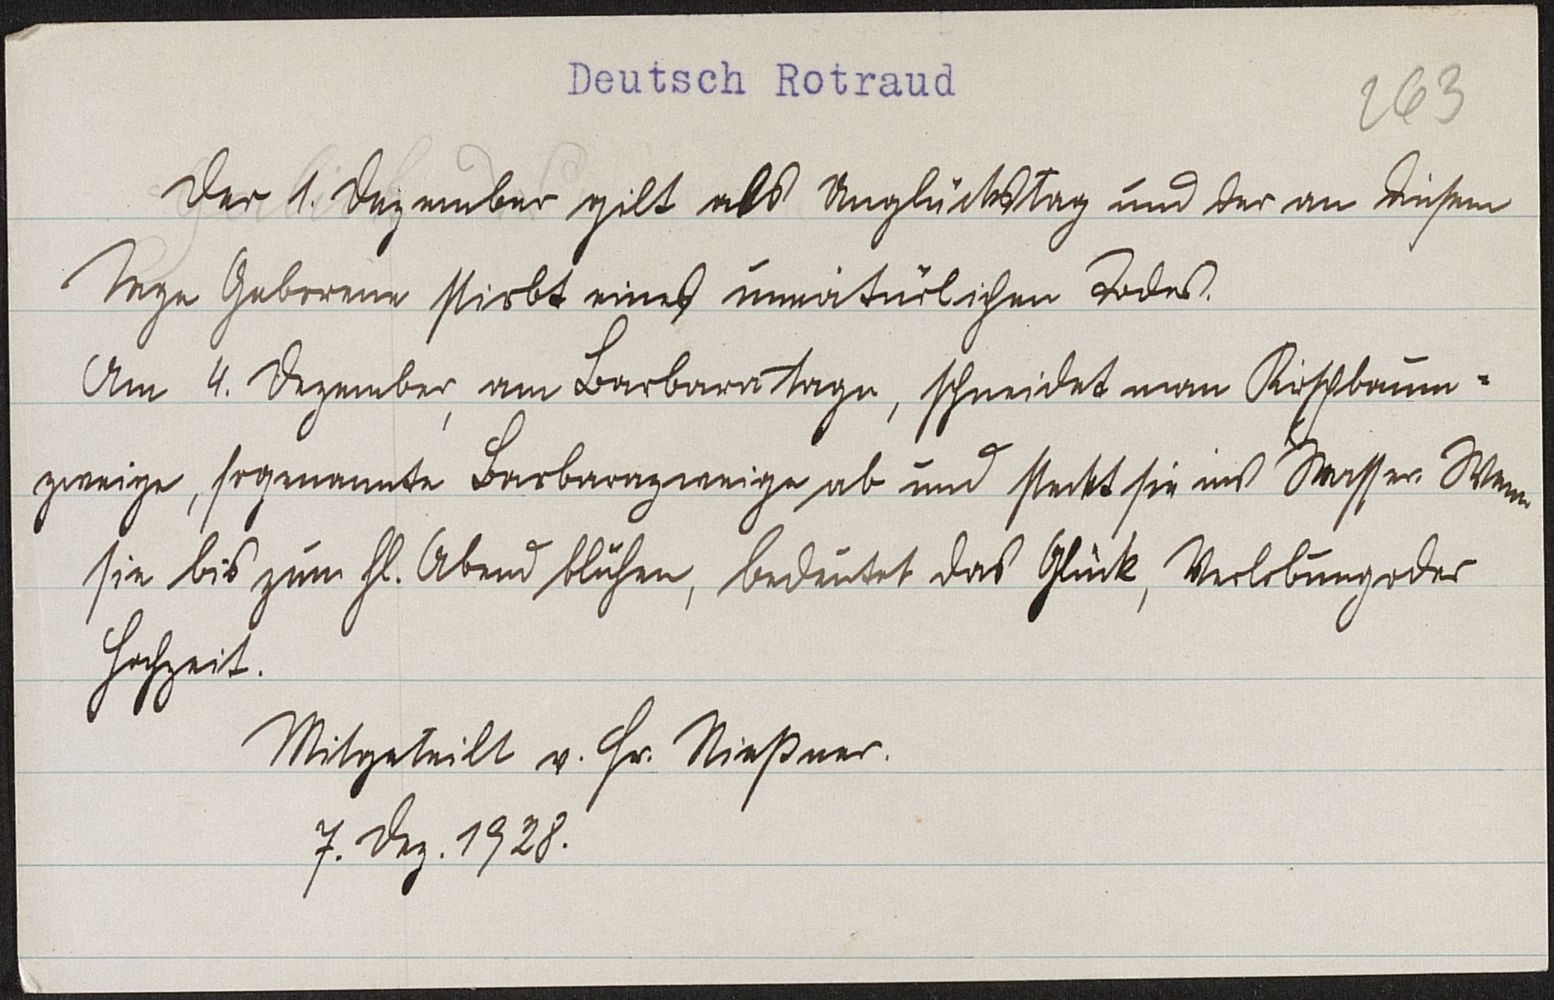 Deutsch Rotraud
263
Der 1. Dezember gilt als Unglückstag und der an diesem
Tage Geborene stirbt eines unnatürlichen Todes.
Am 4. Dezember, am Barbaratage, schneidet man Kirschbaum-
zweige, sogenannte Barbarazweige ab und steckt sie ins Wasser. Wenn
sie bis zum hl. Abend blühen, bedeutet das Glück, Verlobung oder
Hochzeit.
Mitgeteilt v. Fr. Nießner.
7. Dez. 1928.